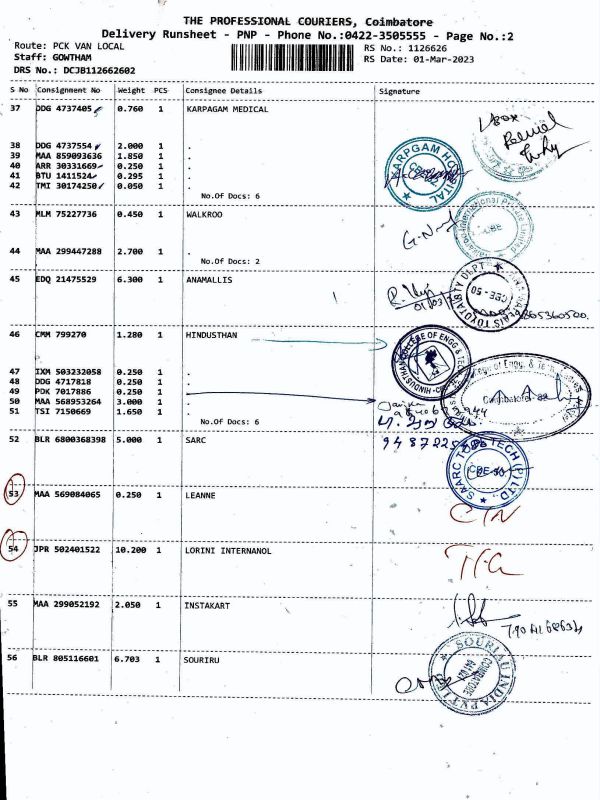 THE PROFESSIONAL COURIERS, Coimbatore
Delivery Runsheet - PNP - Phone No.:0422-3505555 - Page No.:2
Route: PCK VAN LOCAL RS No.: 1126626
Staff: GOWTHAM RS Date: 01-Mar-2023
DRS No.: DCJB112662602
S No Consignment No Weight PCS Consignee Details Signature
37 DDG 4737405 0.760 1 KARPAGAM MEDICAL
38 DDG 4737554 2.000 1 .
39 MAA 859093636 1.850 1 .
40 ARR 30331669 0.250 1 .
41 BTU 1411524 0.295 1 .
42 TMI 30174250 0.050 1 .
No.Of Docs: 6
43 MLM 75227736 0.450 1 WALKROO
44 MAA 299447288 2.700 1 .
No.Of Docs: 2
45 EDQ 21475529 6.300 1 ANAMALLIS
46 CMM 799270 1.280 1 HINDUSTHAN
47 IXM 503232058 0.250 1 .
48 DDG 4717818 0.250 1 .
49 PDK 7017886 0.250 1 .
50 MAA 568953264 3.000 1 .
51 TSI 7150669 1.650 1 .
No.Of Docs: 6
52 BLR 6800368398 5.000 1 SARC
53 MAA 569084065 0.250 1 LEANNE
54 JPR 502401522 10.200 1 LORINI INTERNANOL
55 MAA 299052192 2.050 1 INSTAKART
56 BLR 805116601 6.703 1 SOURIRU
SOURIAU INDIA PVT LTD
COIMBATORE